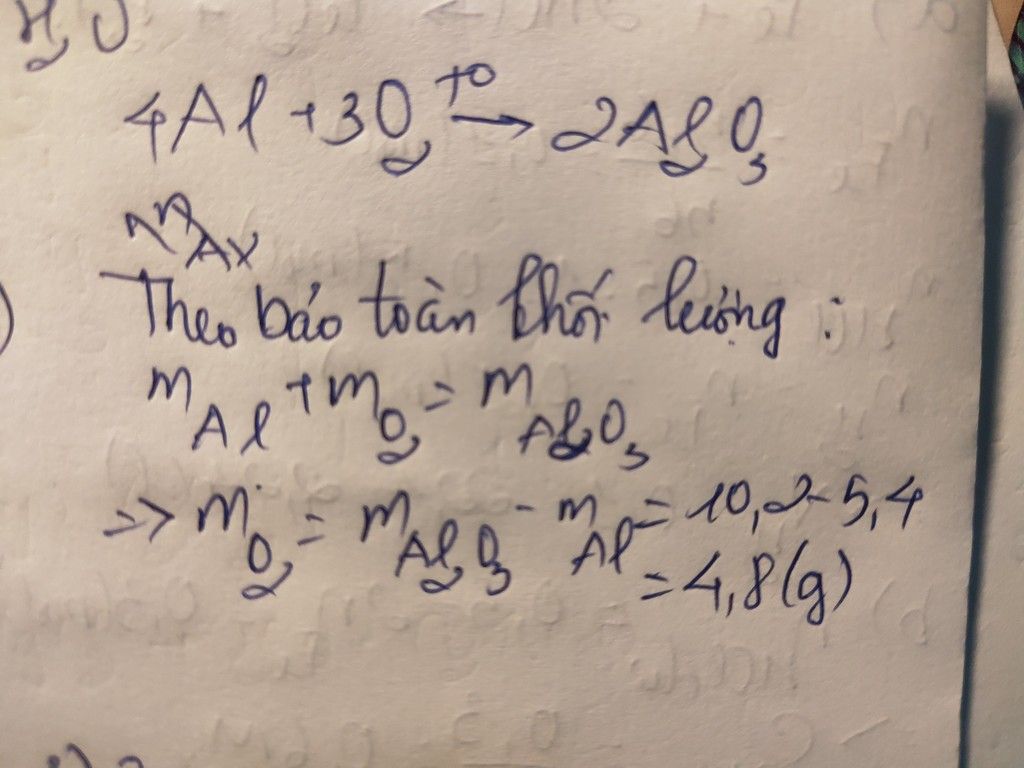 H₂O
4Al + 3O₂ →(t°) 2Al₂O₃
Theo bảo toàn khối lượng :
m Al + m O₂ = m Al₂O₃
=> m O₂ = m Al₂O₃ - m Al = 10,2 - 5,4
= 4,8 (g)